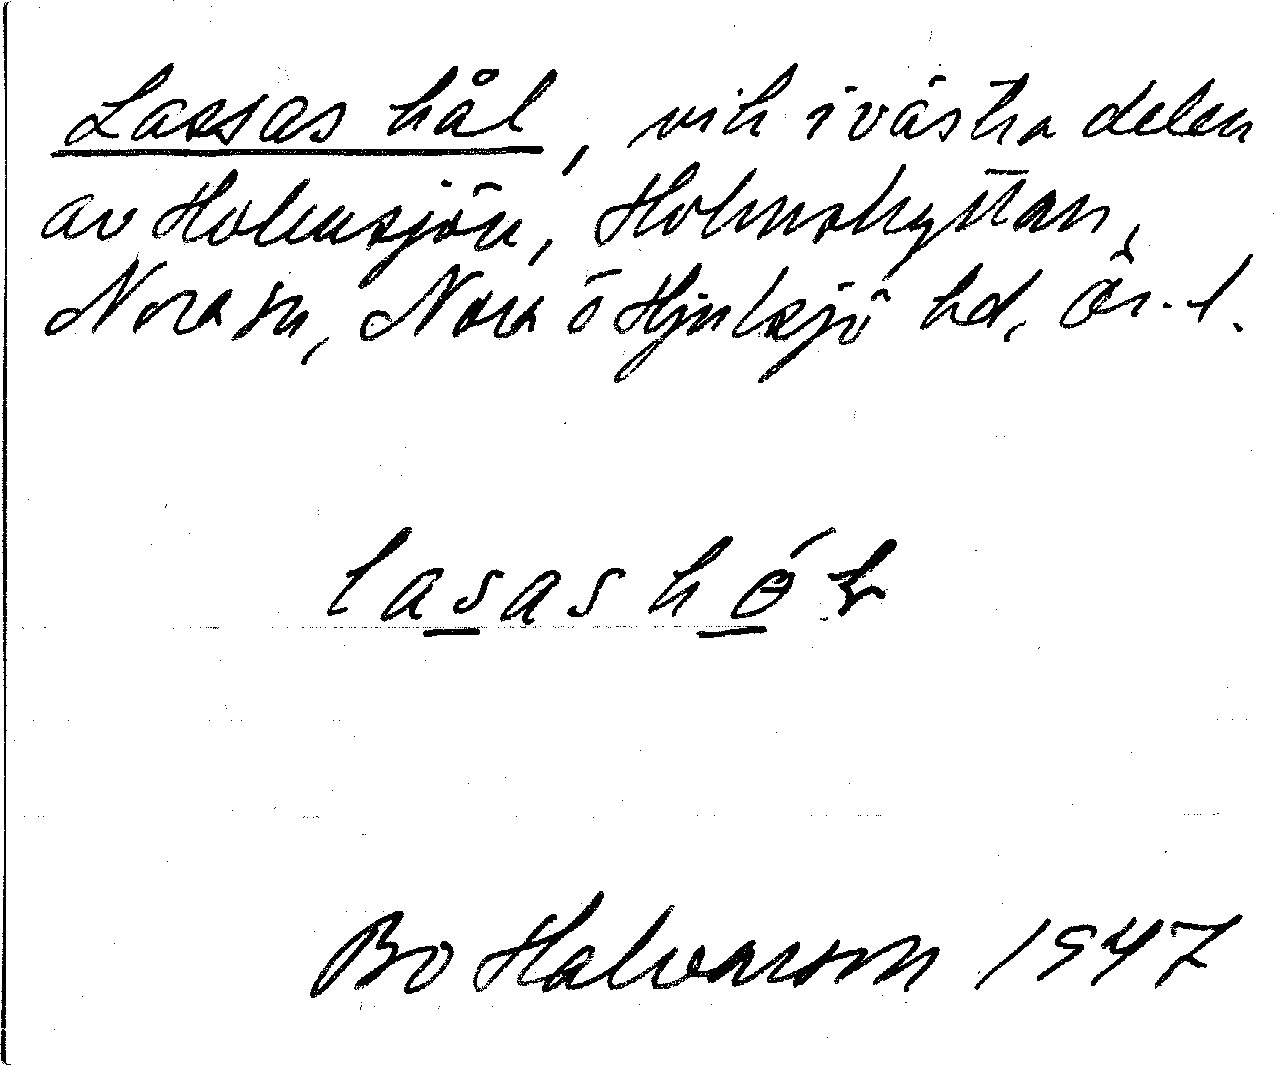 Lassas hål, vik i västra delen
av Holmsjön, Holmshyttan,
Nora sn, Nora o Hjulsjö hd, Ör. l.
lasas hól
Bo Halvarson 1947